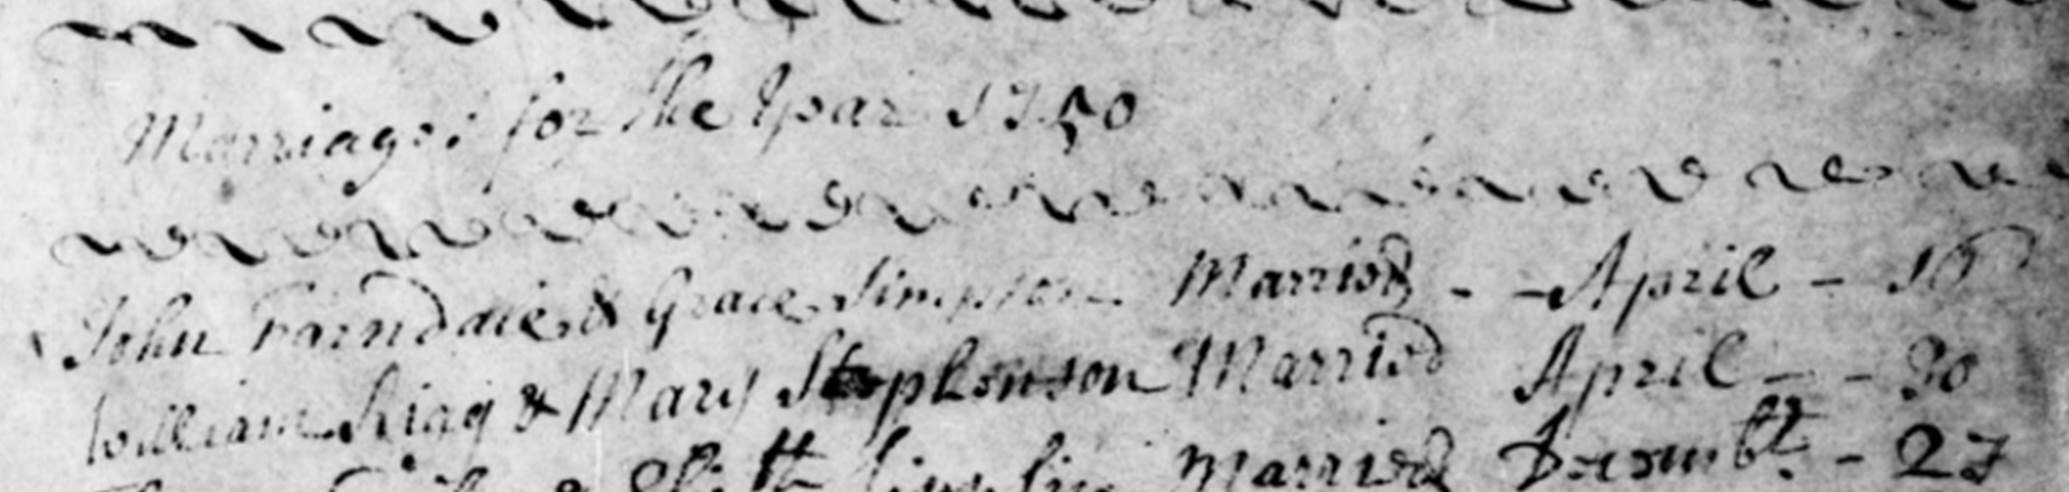 Marriages for the Year 1750
John Farndale & Grace Simpson Married - - April - 16
William Rigg & Mary Stephenson Married April - - 30
& Married Decembr. - 27